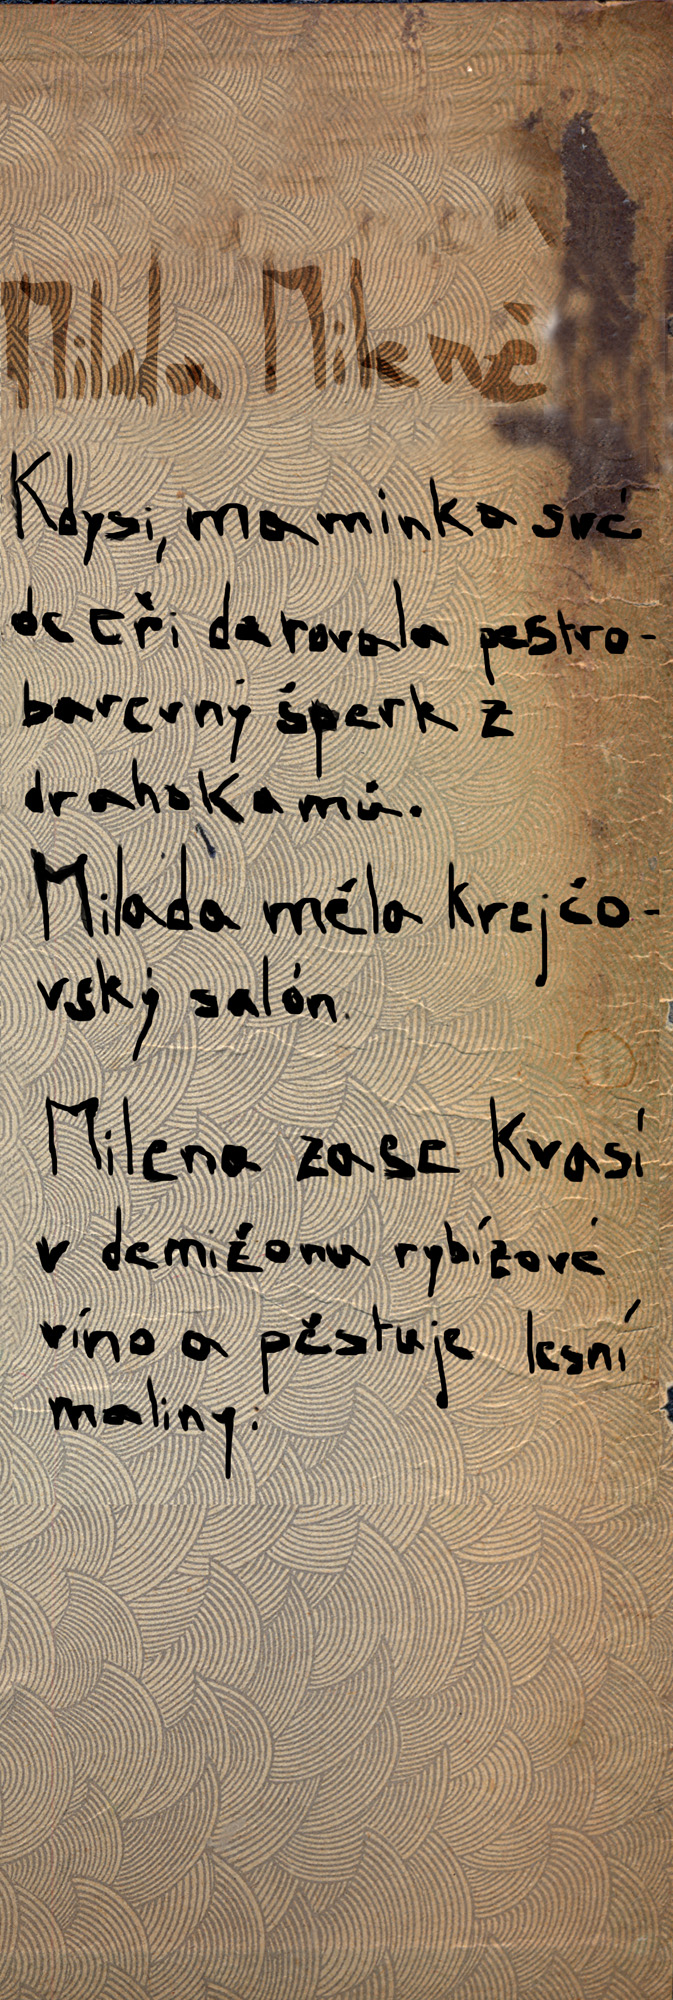 Milada Mileně
Kdysi, maminka své
dceři darovala pestro-
barevný šperk z
drahokamů.
Milada měla krejčo-
vský salón.
Milena zase kvasí
v demižonu rybízové
víno a pěstuje lesní
maliny.